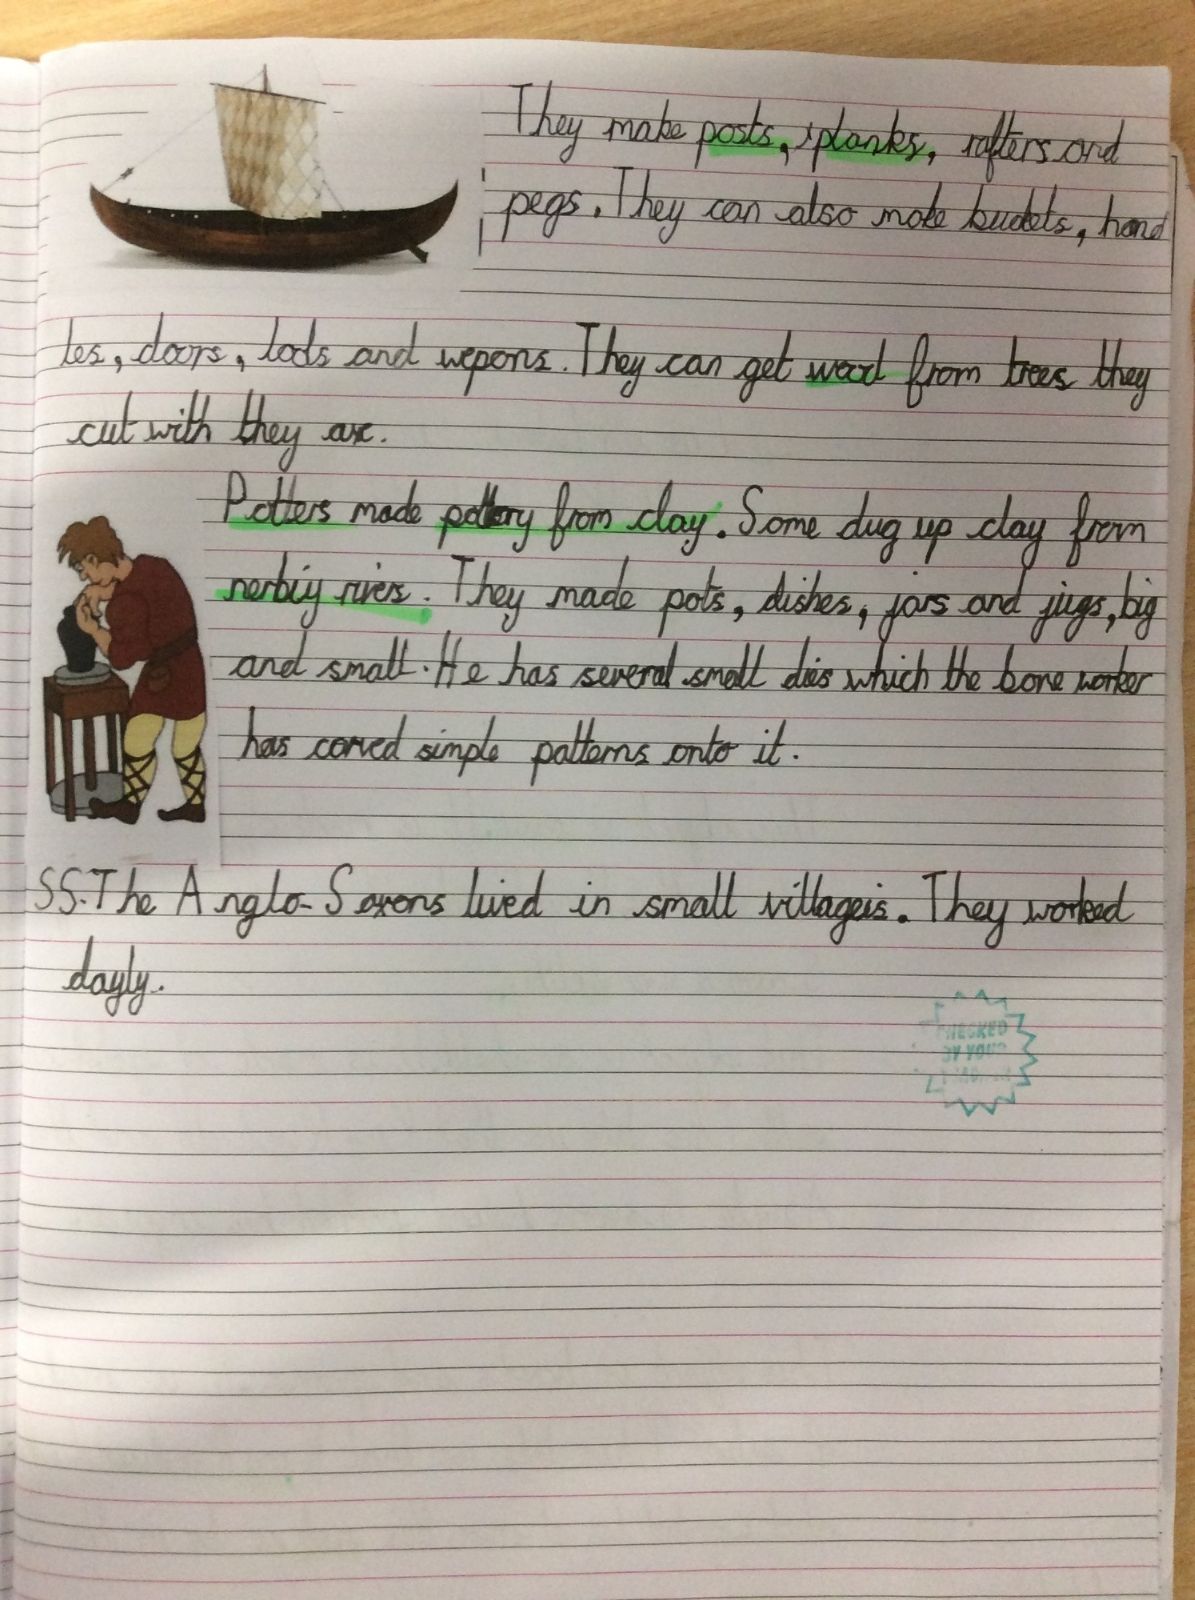 They make posts, planks, rafters and
pegs. They can also make buckets, hand
les, doors, tools and wepons. They can get wood from trees they
cut with they axe.
Potters made pottery from clay. Some dug up clay from
nerbiy rivers. They made pots, dishes, jars and jugs, big
and small. He has several small dies which the bone worker
has carved simple patterns onto it.
SS.The Anglo-Saxons lived in small villageis. They worked
dayly.
CHECKED
BY YOUR